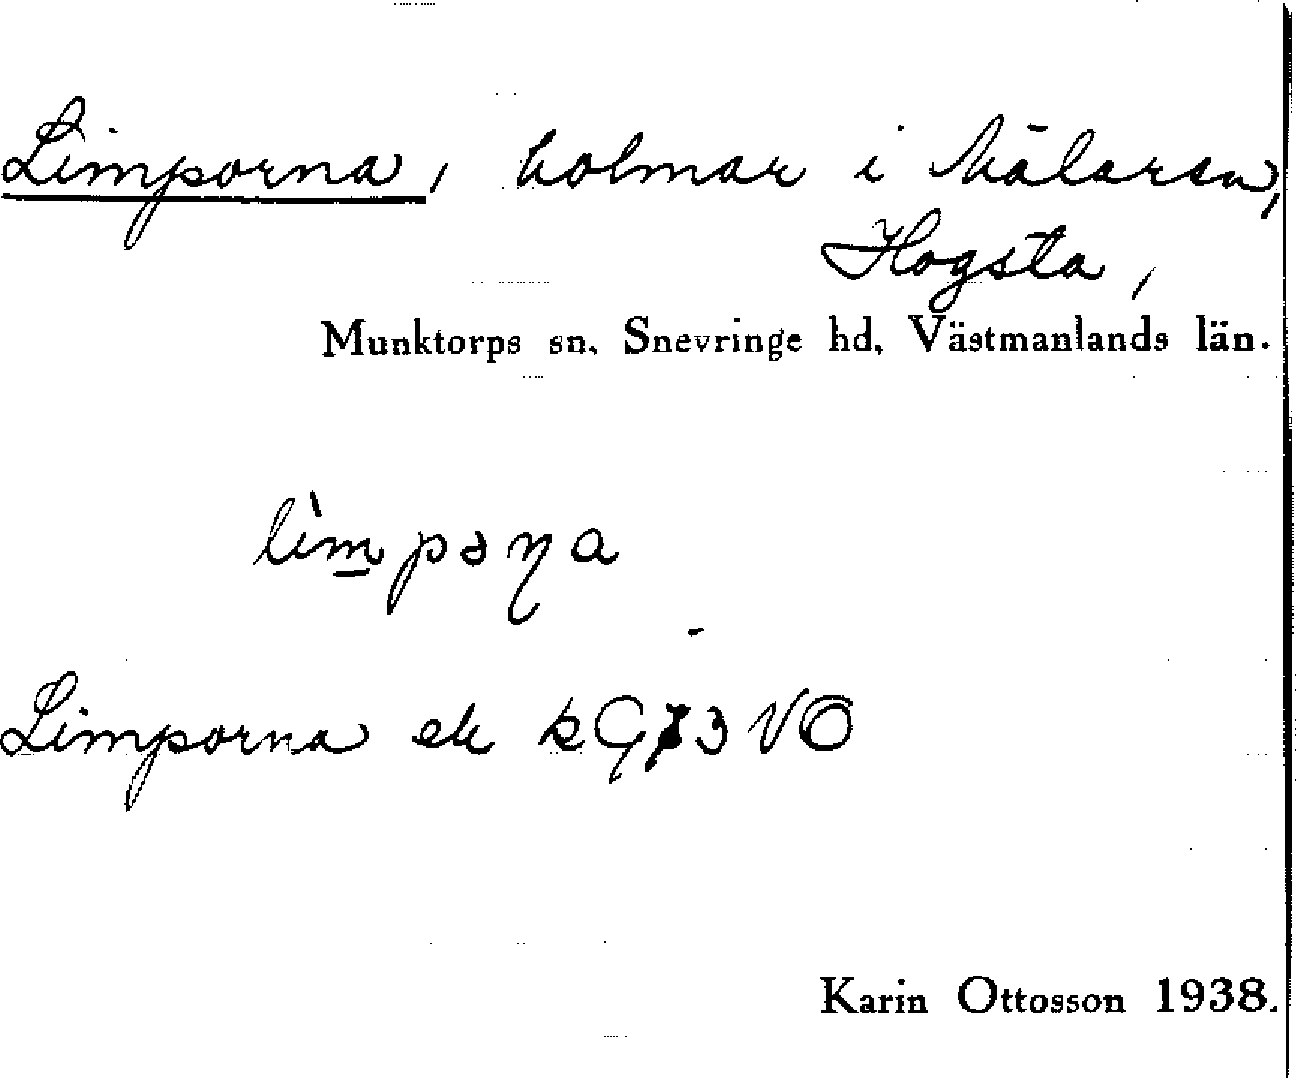 Limporna, holmar i Mälaren,
Hogsta,
Munktorps sn. Snevringe hd, Västmanlands län.
lìm̲pəɳa
Limporna ek kG73 VO
Karin Ottosson 1938.